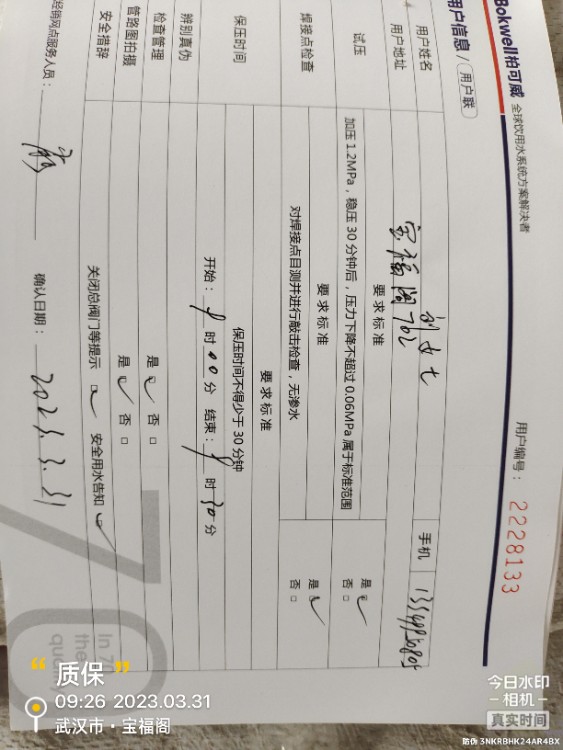 Bokwell柏可威 全球饮用水系统方案解决者
用户信息 / 用户联
用户编号： 2228133
用户姓名 刘女士 手机
用户地址 宝福阁702
要求标准
试压 加压 1.2MPa，稳压 30 分钟后，压力下降不超过 0.06MPa 属于标准范围 是 否
要求标准
焊接点检查 对焊接点目测并进行敲击检查，无渗水 是 否
要求标准
保压时间 保压时间不得少于 30 分钟
开始： 9 时 00 分 结束： 9 时 30 分
辨别真伪
检查管理 是 否
管路图拍摄 是 否
安全措辞 关闭总阀门等提示 安全用水告知
经销网点服务人员： 确认日期： 2023.3.31
In 7
the
quality
质保
09:26 2023.03.31
武汉市·宝福阁
今日水印
相机
真实时间
防伪 3NKRBHK24AR4BX